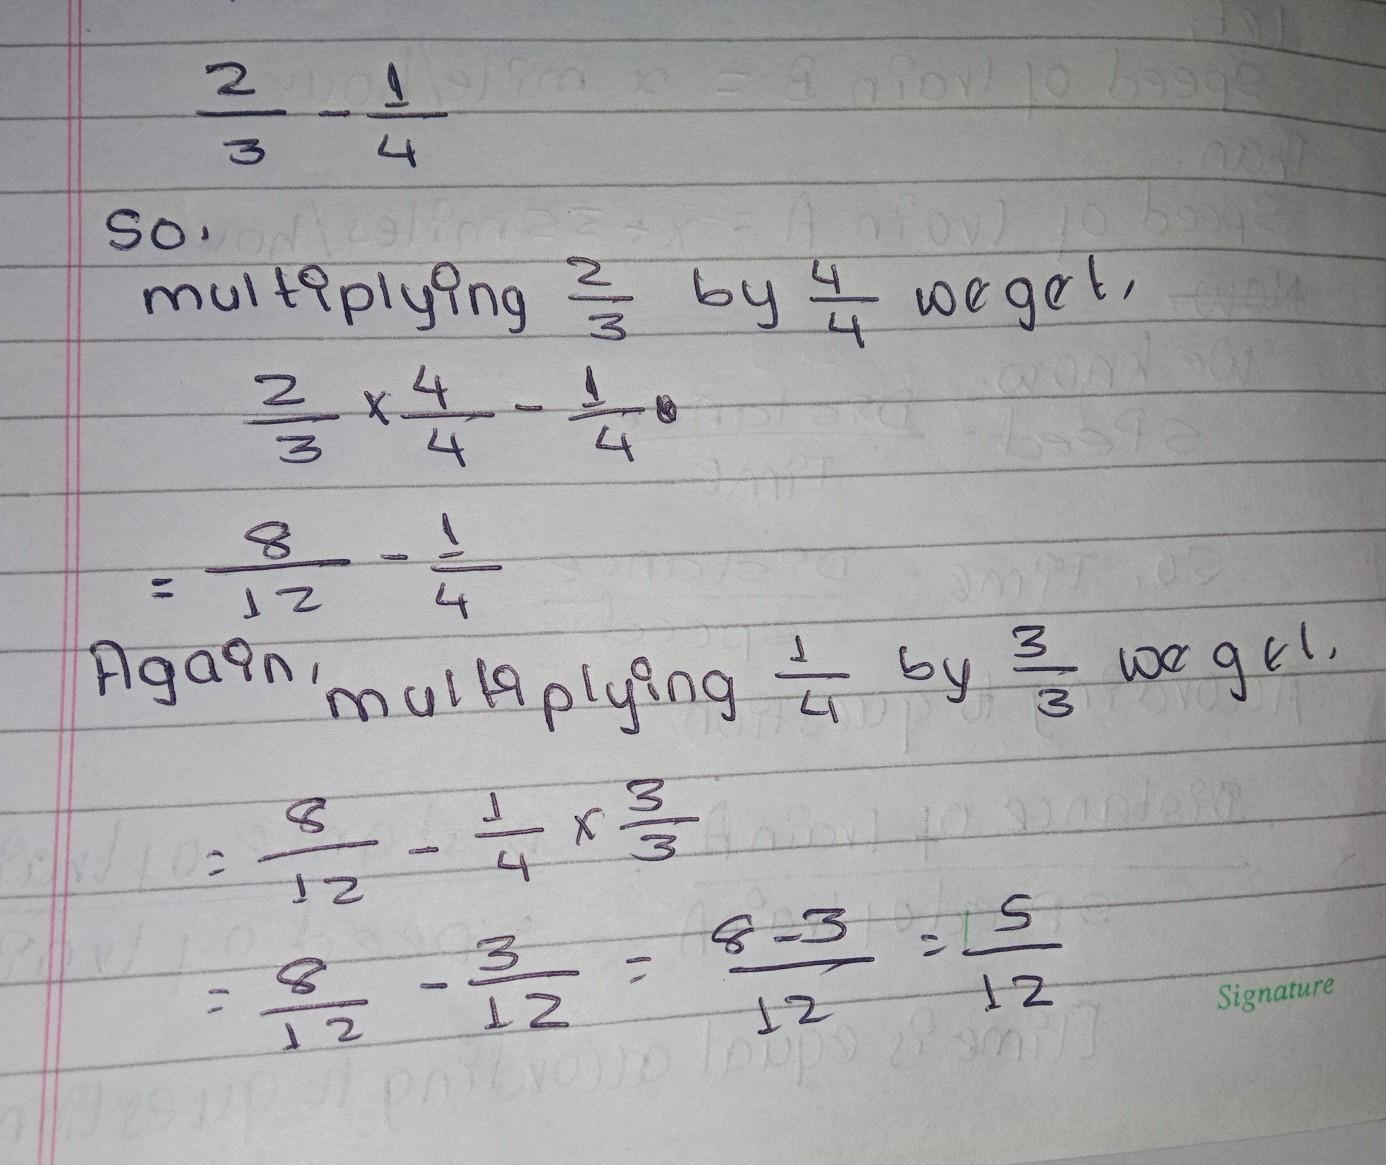 2/3 - 1/4
So,
multiplying 2/3 by 4/4 we get,
2/3 × 4/4 - 1/4
= 8/12 - 1/4
Again, multiplying 1/4 by 3/3 we get,
= 8/12 - 1/4 × 3/3
= 8/12 - 3/12 = 8-3/12 = 5/12
Signature